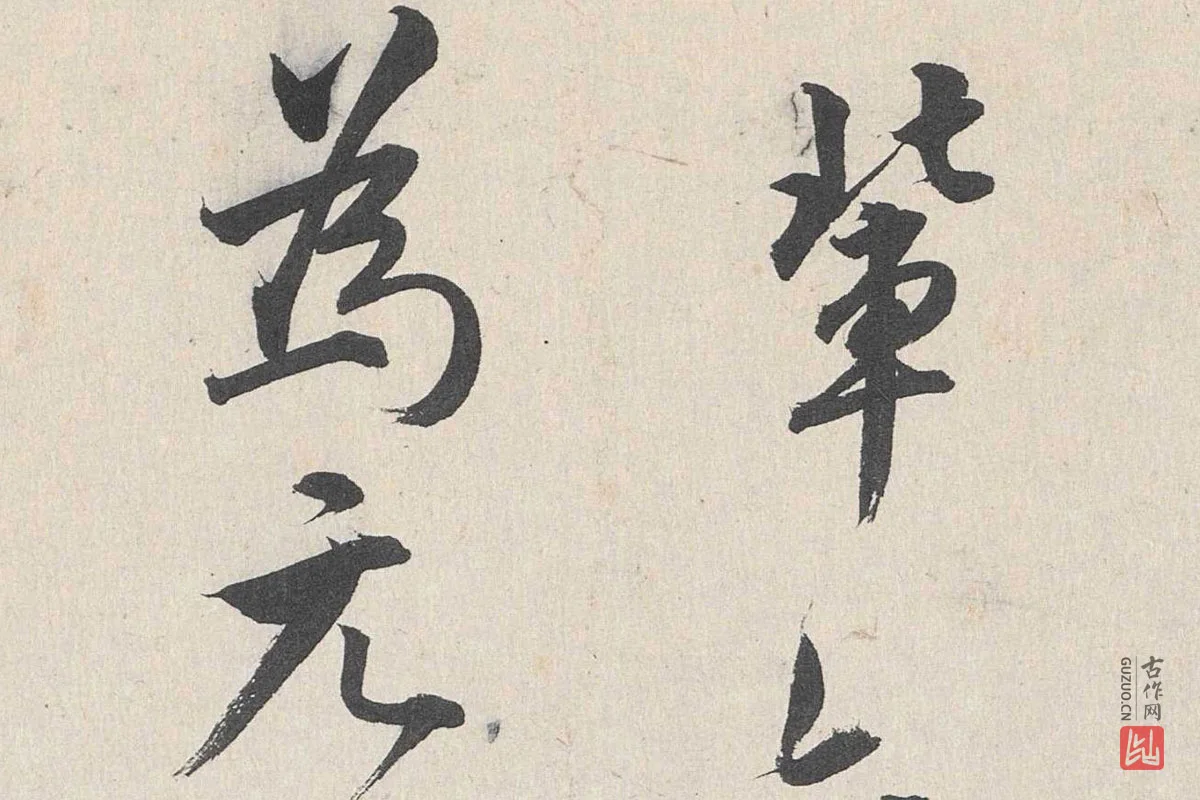 輩
為元
古作网
GUZUO.CN